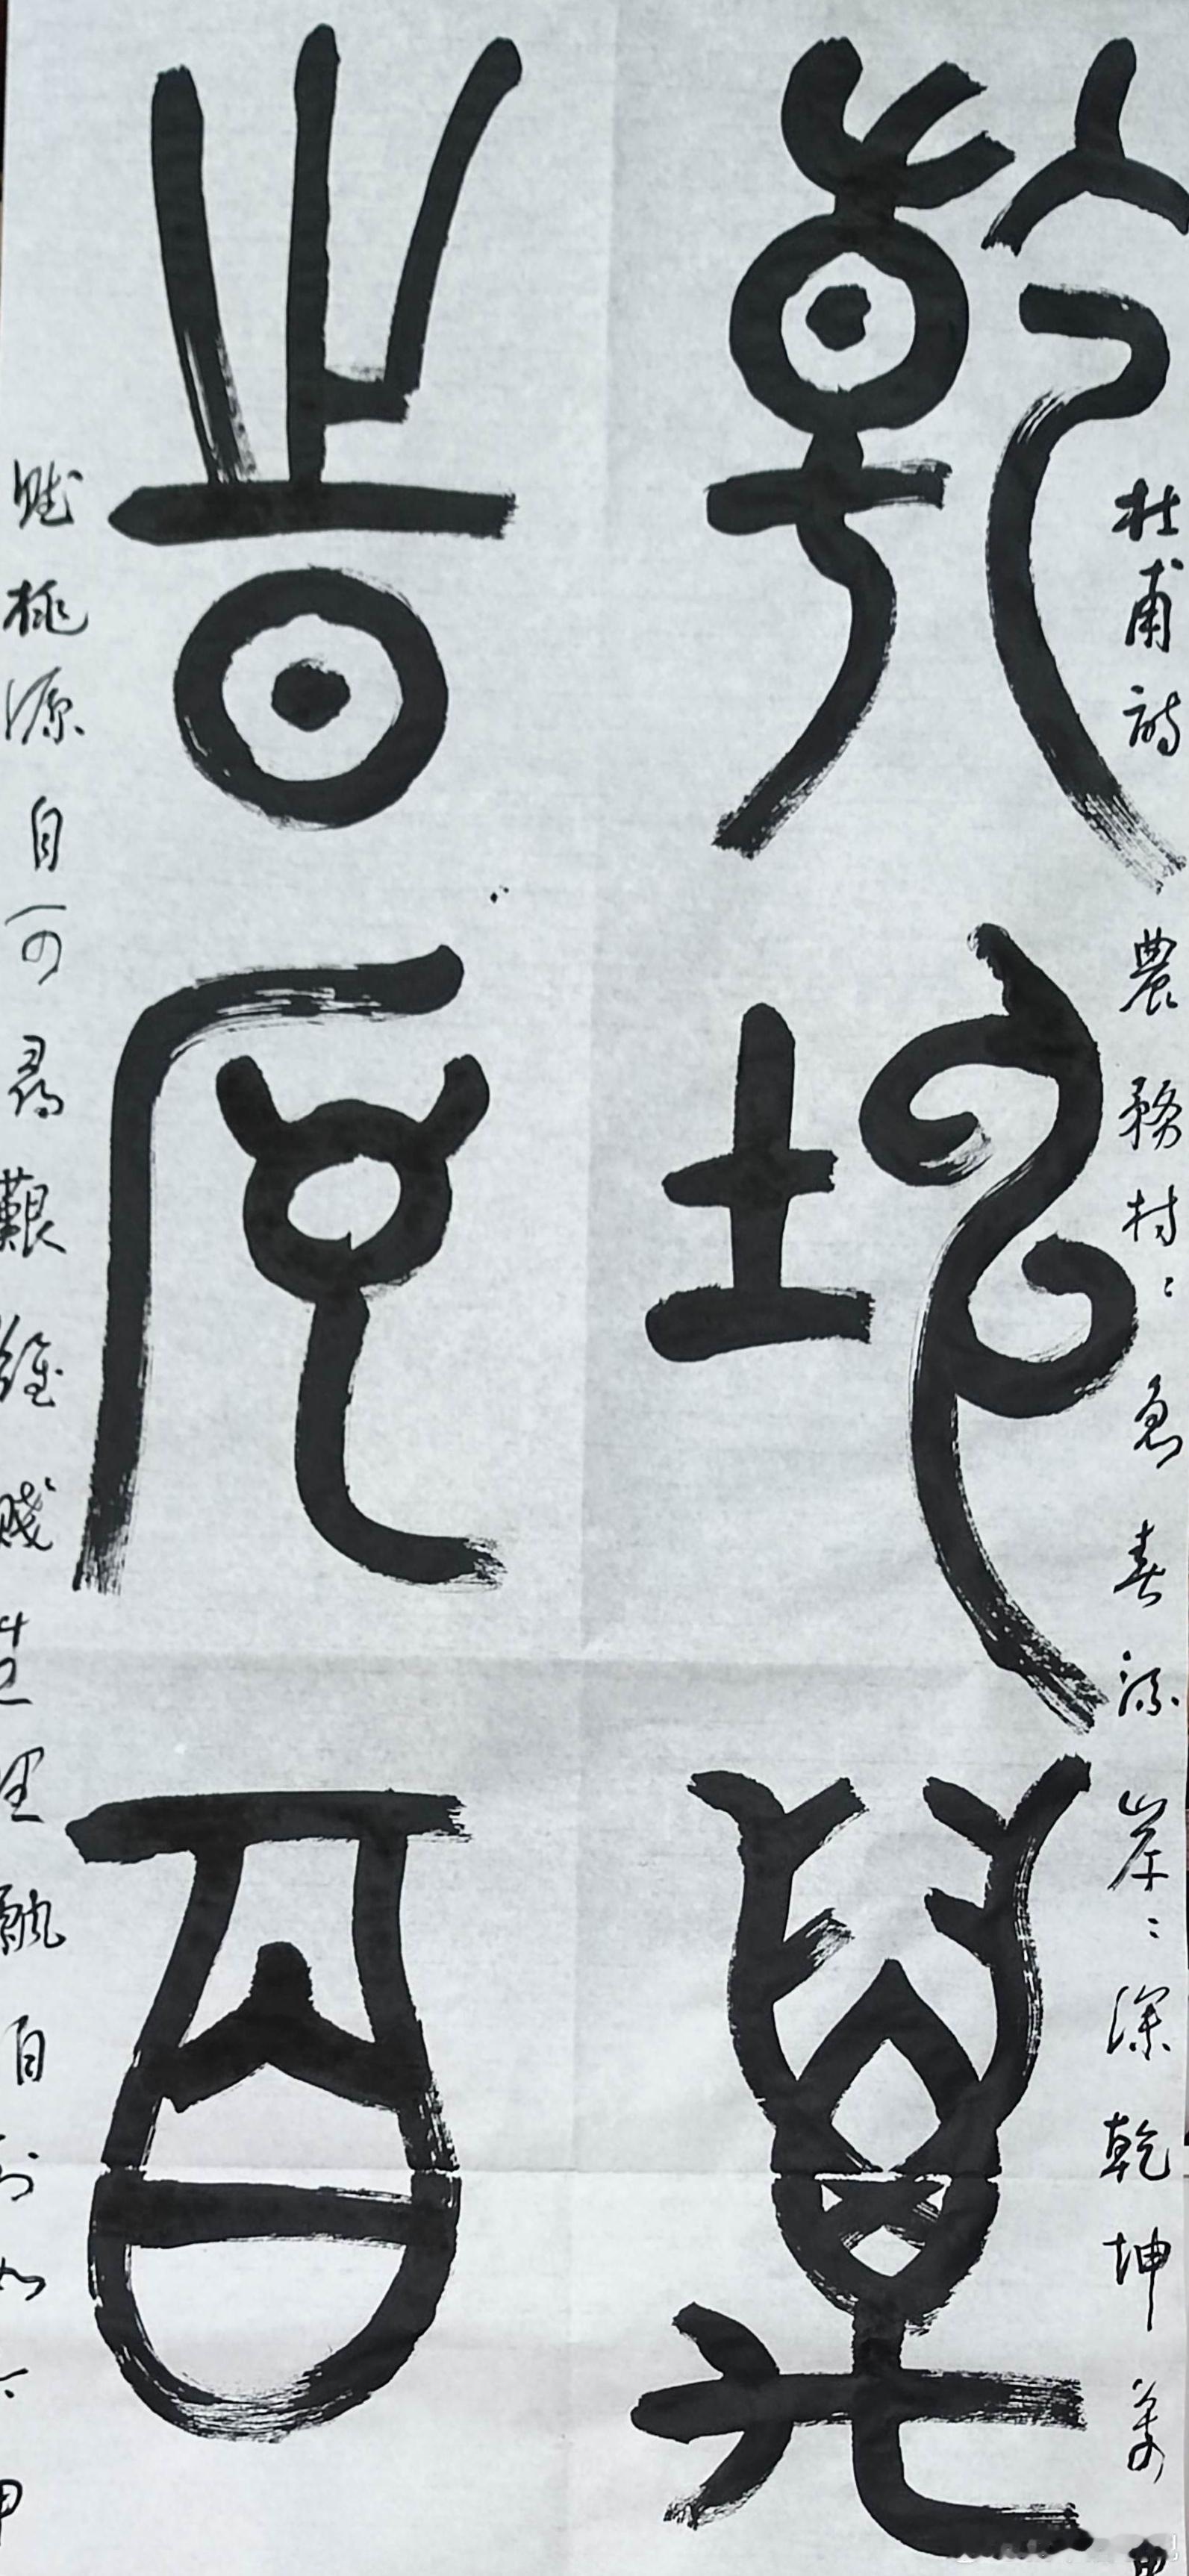 杜甫詩農務村〻急春流岸〻深乾坤萬
乾坤萬
旹百
賦桃源自可尋艱難賤生理飄自到如今甲